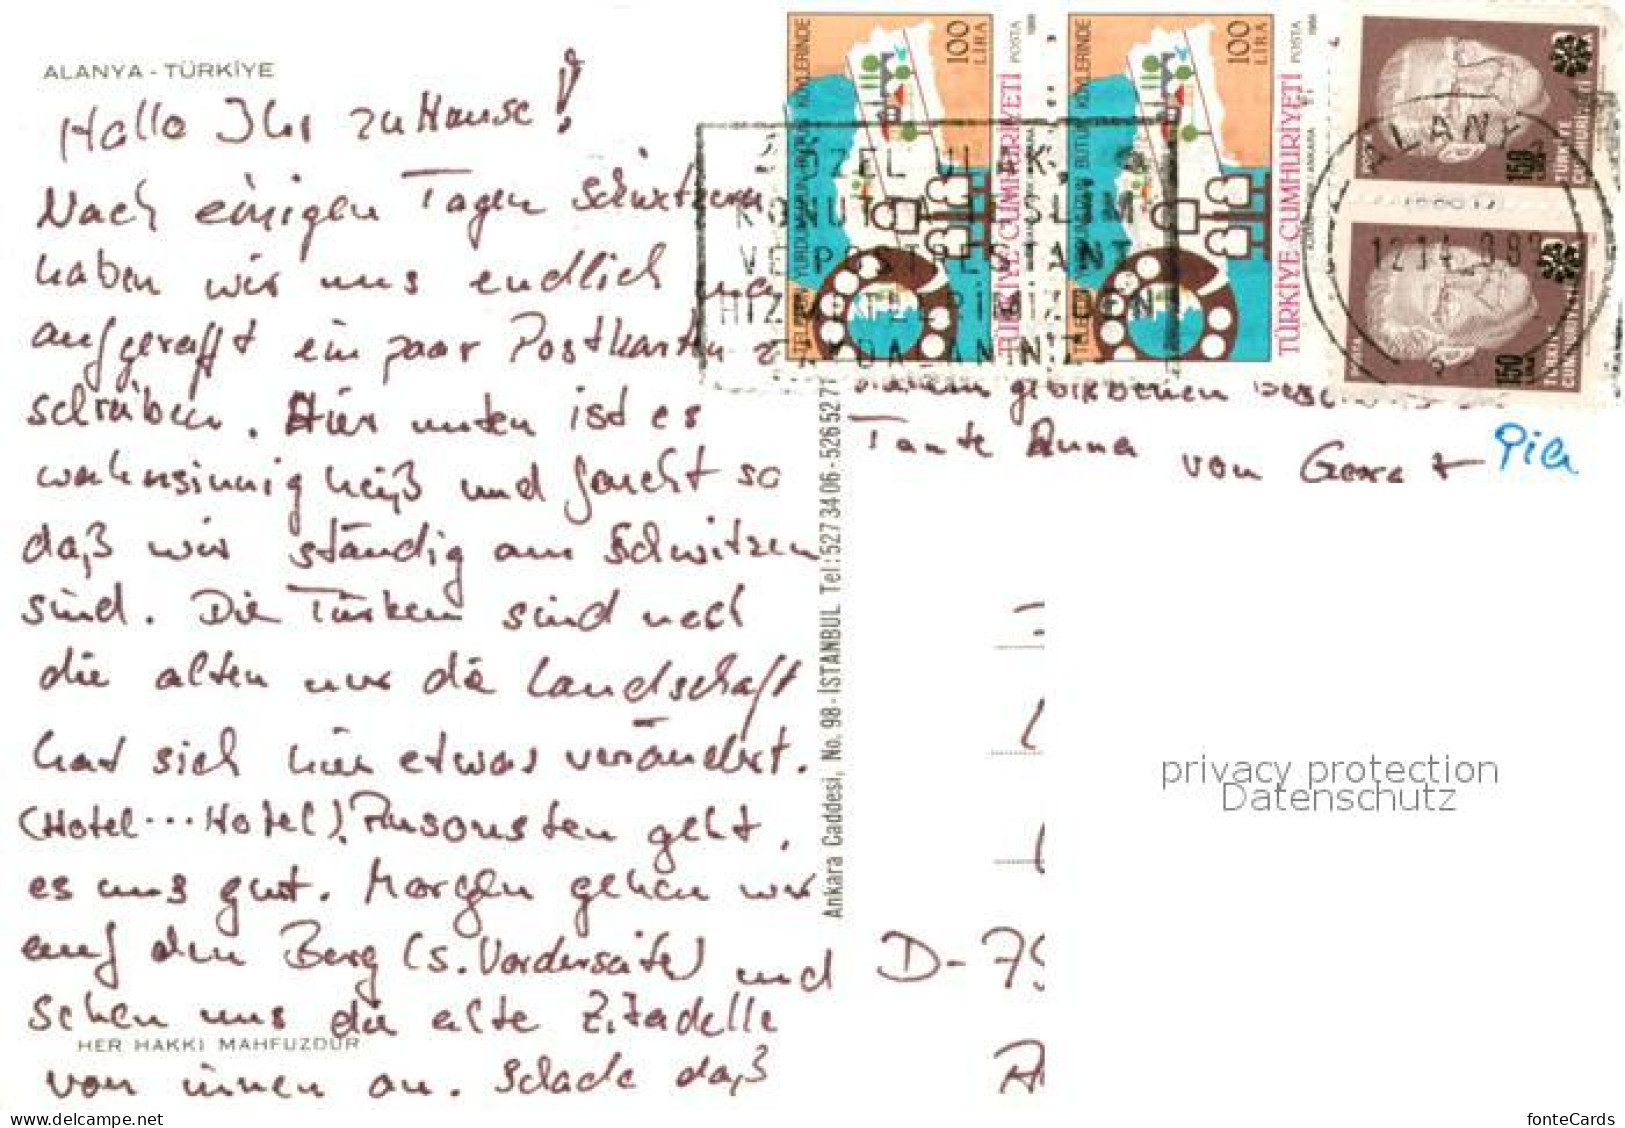 ALANYA - TÜRKİYE
Hallo Ihr zu Hause!
Nach einigen Tagen Schwitzen
haben wir uns endlich
aufgerafft ein paar Postkarten z
schreiben. Hier unten ist es
wahnsinnig heiß und feucht so
daß wir ständig am Schwitzen
sind. Die Türken sind noch
die alten nur die Landschaft
hat sich hier etwas verändert.
(Hotel...Hotel). Ansonsten geht
es uns gut. Morgen gehen wir
auf den Berg (s. Vorderseite) und
sehen uns die alte Zitadelle
HER HAKKI MAHFUZDUR
von innen an. Schade daß
Ankara Caddesi, No. 98 - İSTANBUL Tel: 527 34 06 - 526 52 71
TELEFON YURDUMUZUN BÜTÜN KÖYLERİNDE
100 LİRA
POSTA
1986
TÜRKİYE CUMHURİYETİ
TELEFON YURDUMUZUN BÜTÜN KÖYLERİNDE
100 LİRA
POSTA
1986
TÜRKİYE CUMHURİYETİ
150
TÜRKİYE
CUMHURİYETİ
150
TÜRKİYE
CUMHURİYETİ
ÖZEL ULAK,
KONUTTA TESLİM
VE POSTRESTANT
HİZMETLERİMİZDEN
ALANY
daheim gebliebenen
Tante Anna
von Georg + Pia
D-79
privacy protection
Datenschutz
delcampe.net
fonteCards